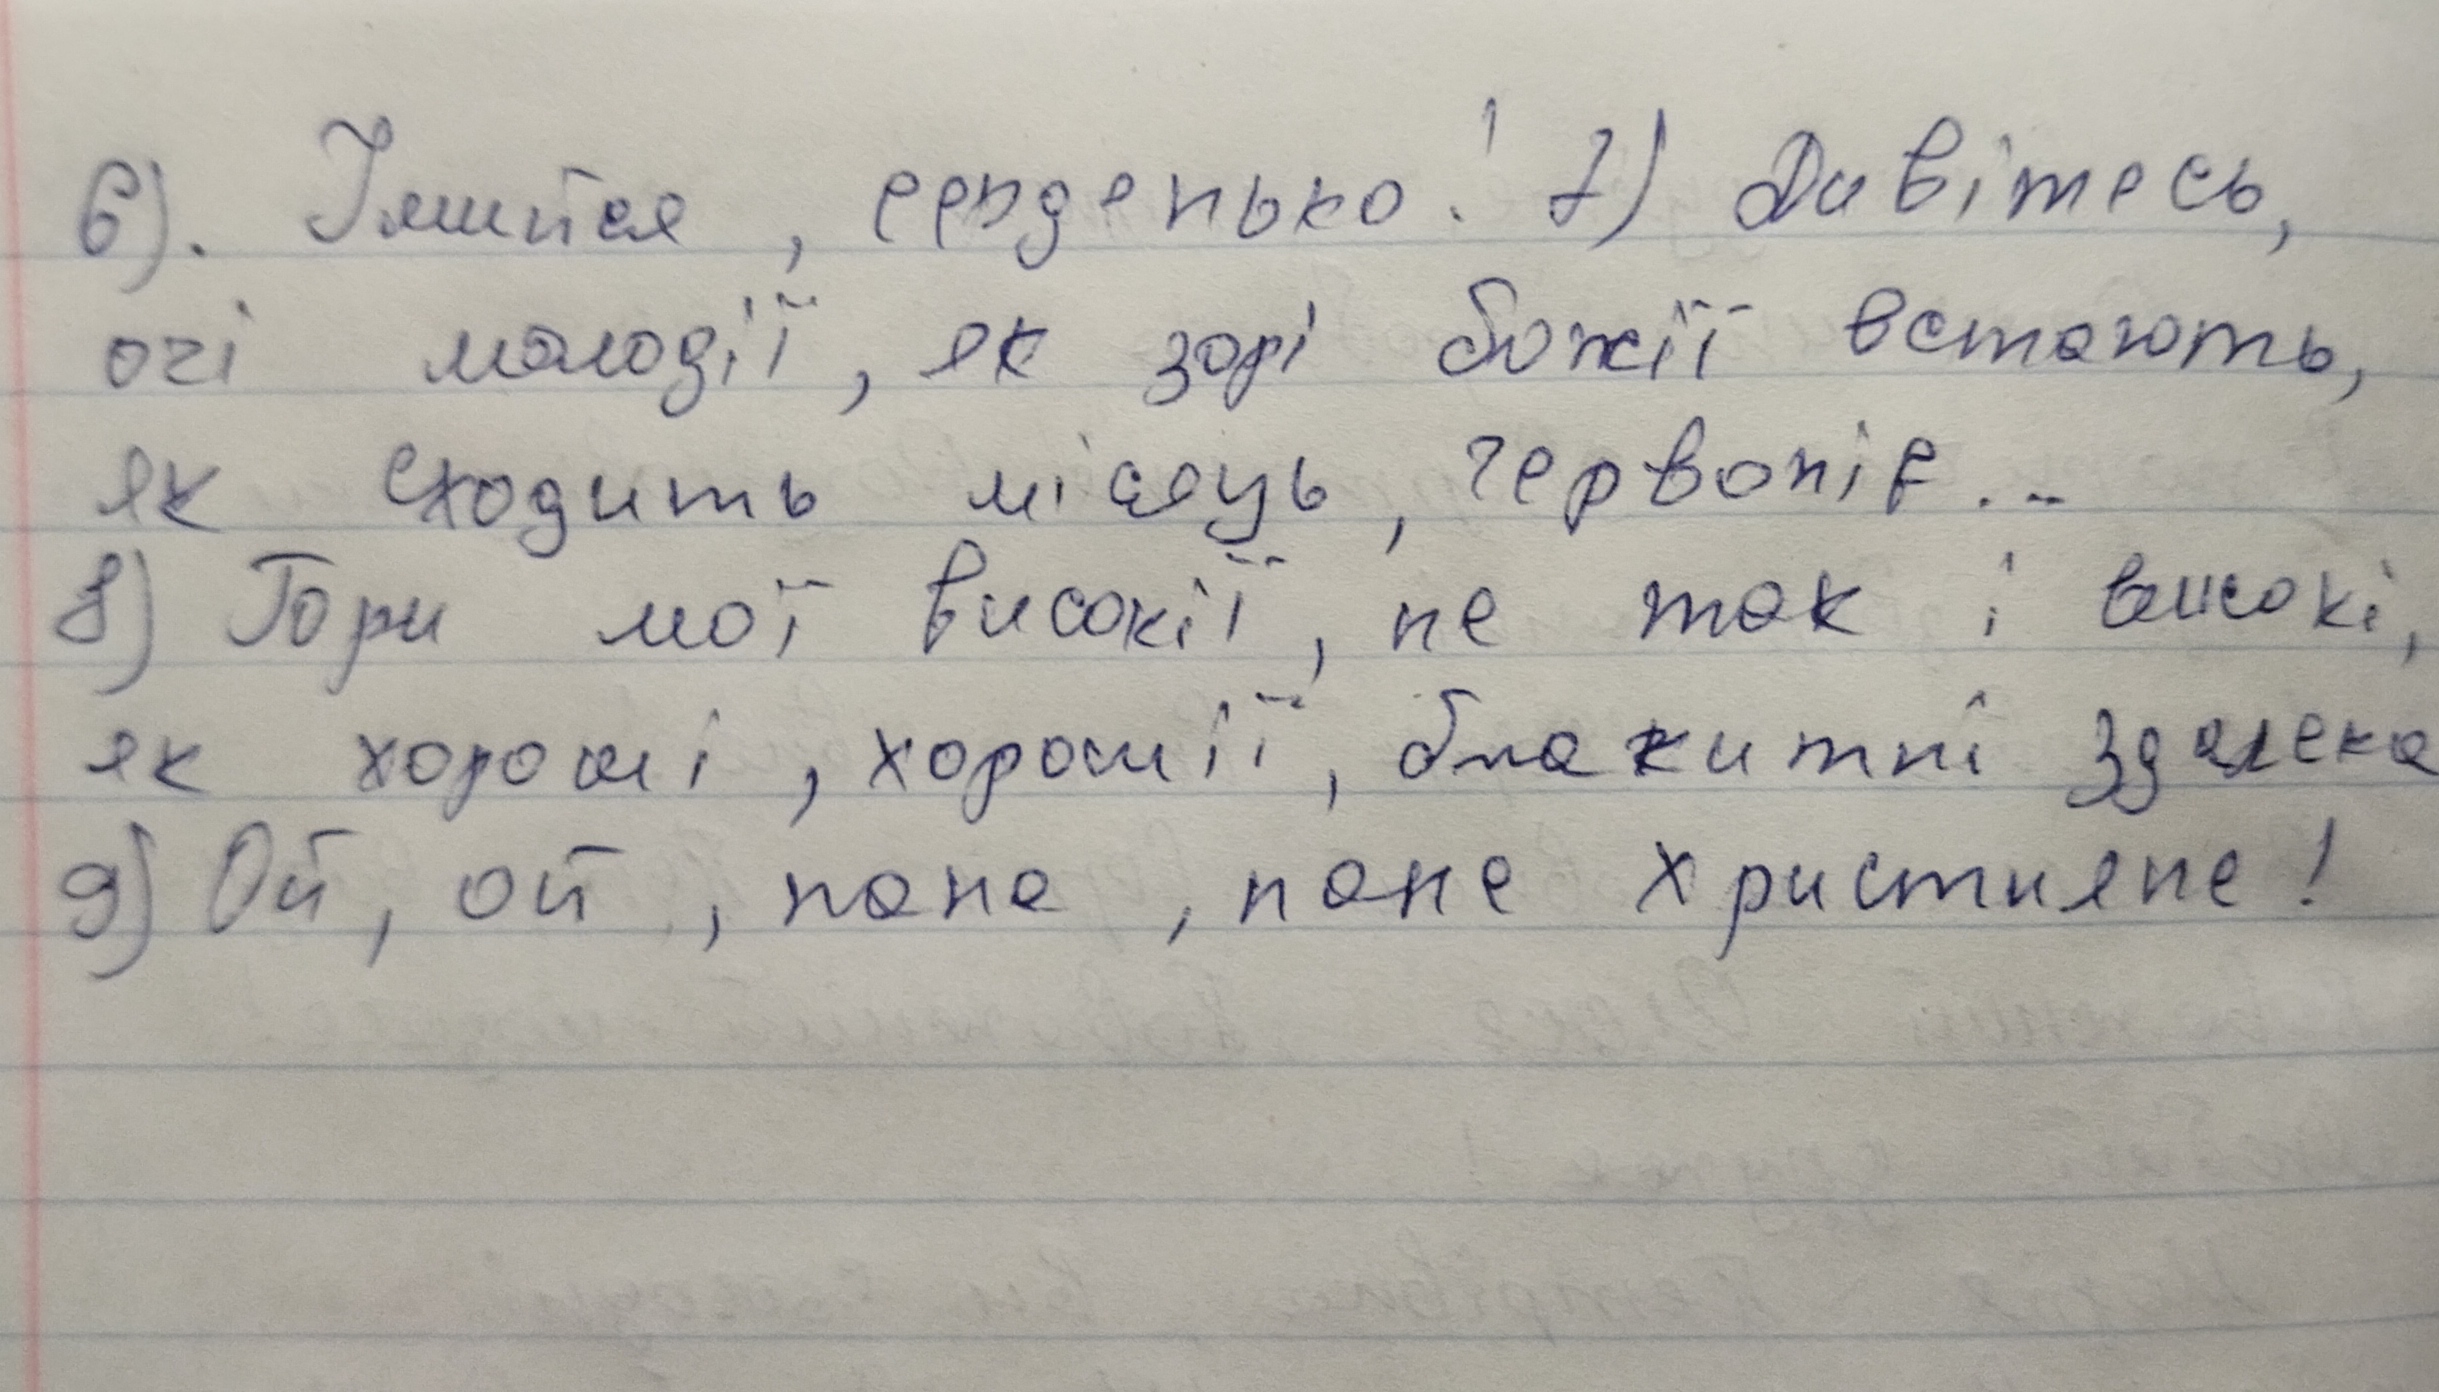 6). , серденько! 7) Дивітесь,
очі молодії, як зорі божії встають,
як сходить місяць, червоніє...
8) Гори мої високії, не так і високі,
як хороші, хорошії, блакитні здалека
9) Ой, ой, пане, пане християне!